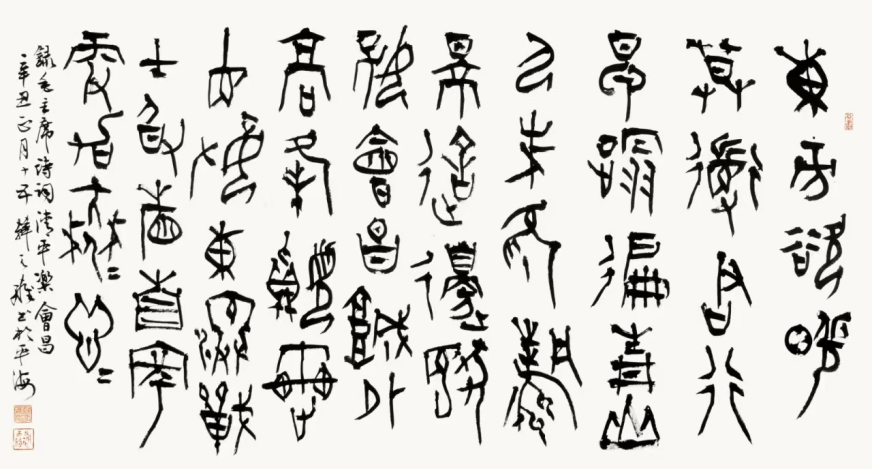 東方欲曉
莫道君行
早踏遍青山
人未老風
景這邊獨
好會昌城外
高峰顛連
直接東溟戰
士指看南粵
更加鬱〻蔥〻
錄毛主席詩詞清平樂會昌
辛丑正月十五韓之書於平海